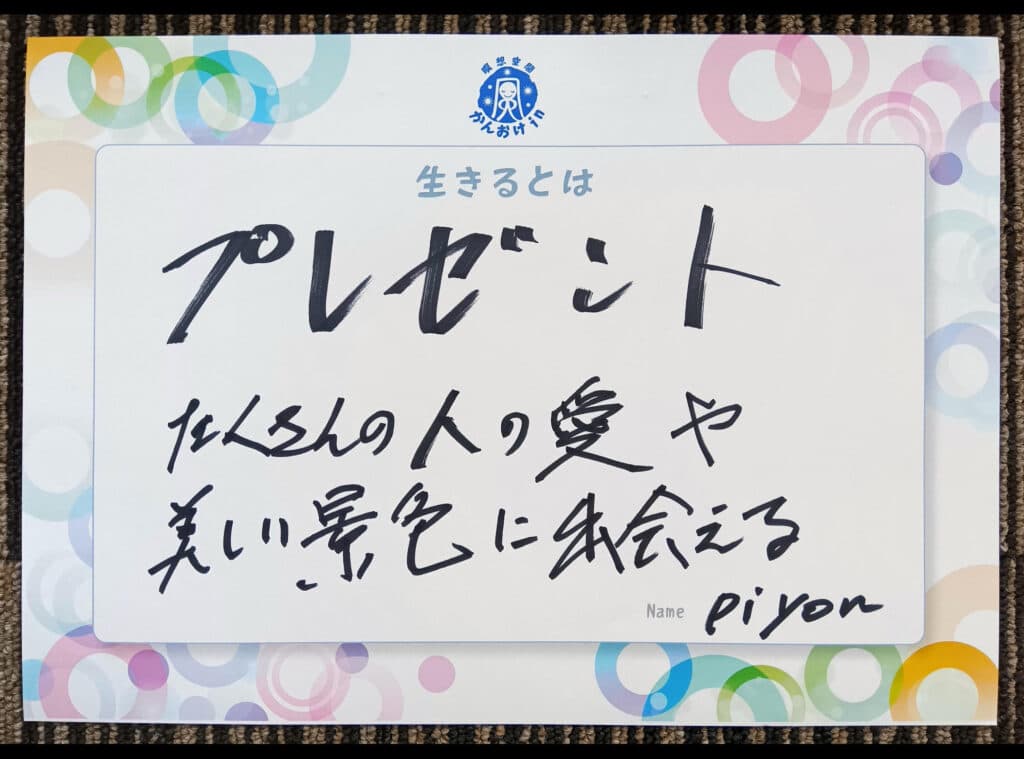 瞑想空間
かんおけin
生きるとは
プレゼント
たくさんの人の愛や
美しい景色に出会える
Name piyon